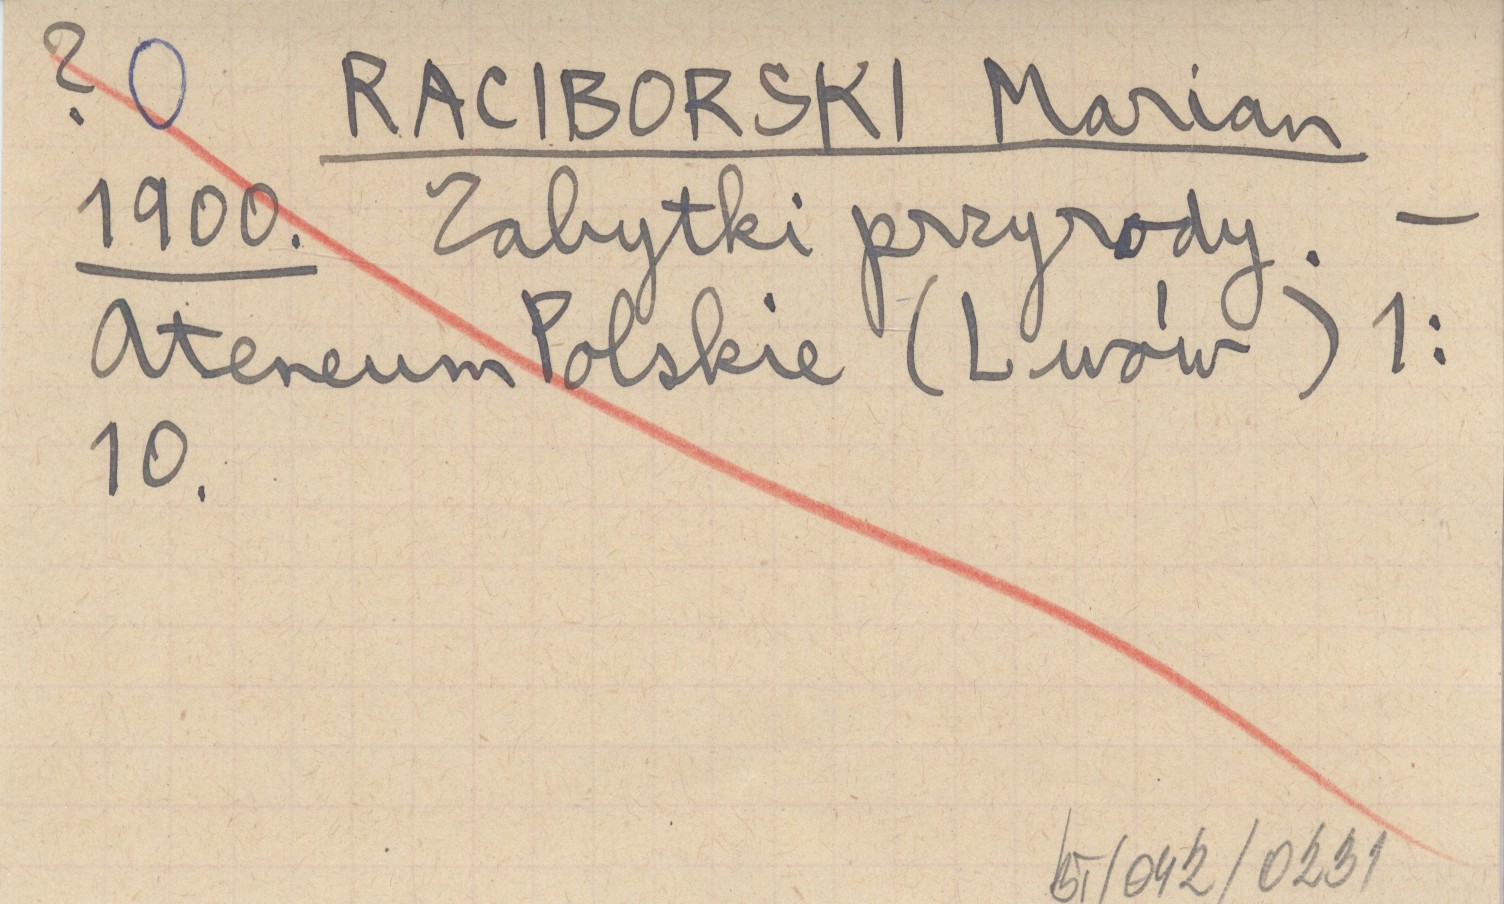 ? 0 RACIBORSKI Marian
1900. Zabytki przyrody. —
Ateneum Polskie (Lwów) 1:
10.
/042/0231